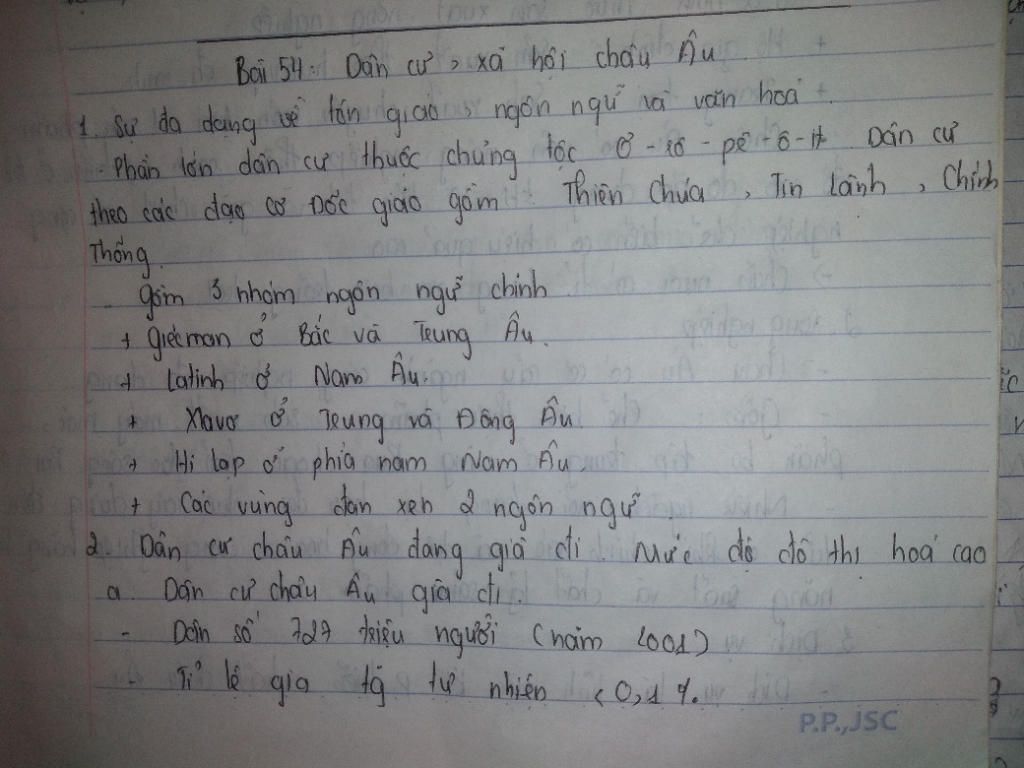 Bài 54: Dân cư, xã hội châu Âu
1. Sự đa dạng về tôn giáo, ngôn ngữ và văn hoá.
- Phần lớn dân cư thuộc chủng tộc Ơ-rô-pê-ô-it Dân cư
theo các đạo cơ Đốc giáo gồm Thiên Chúa, Tin Lành, Chính
Thống.
Gồm 3 nhóm ngôn ngữ chính
+ Giécman ở Bắc và Trung Âu.
+ Latinh ở Nam Âu.
+ Xlavơ ở Trung và Đông Âu
+ Hi lạp ở phía nam Nam Âu.
+ Các vùng đan xen 2 ngôn ngữ.
2. Dân cư châu Âu đang già đi. Mức độ đô thị hoá cao
a. Dân cư châu Âu già đi.
- Dân số 727 triệu người (năm 2001)
- Tỉ lệ gia tg tự nhiên <0,1%.
P.P.,JSC